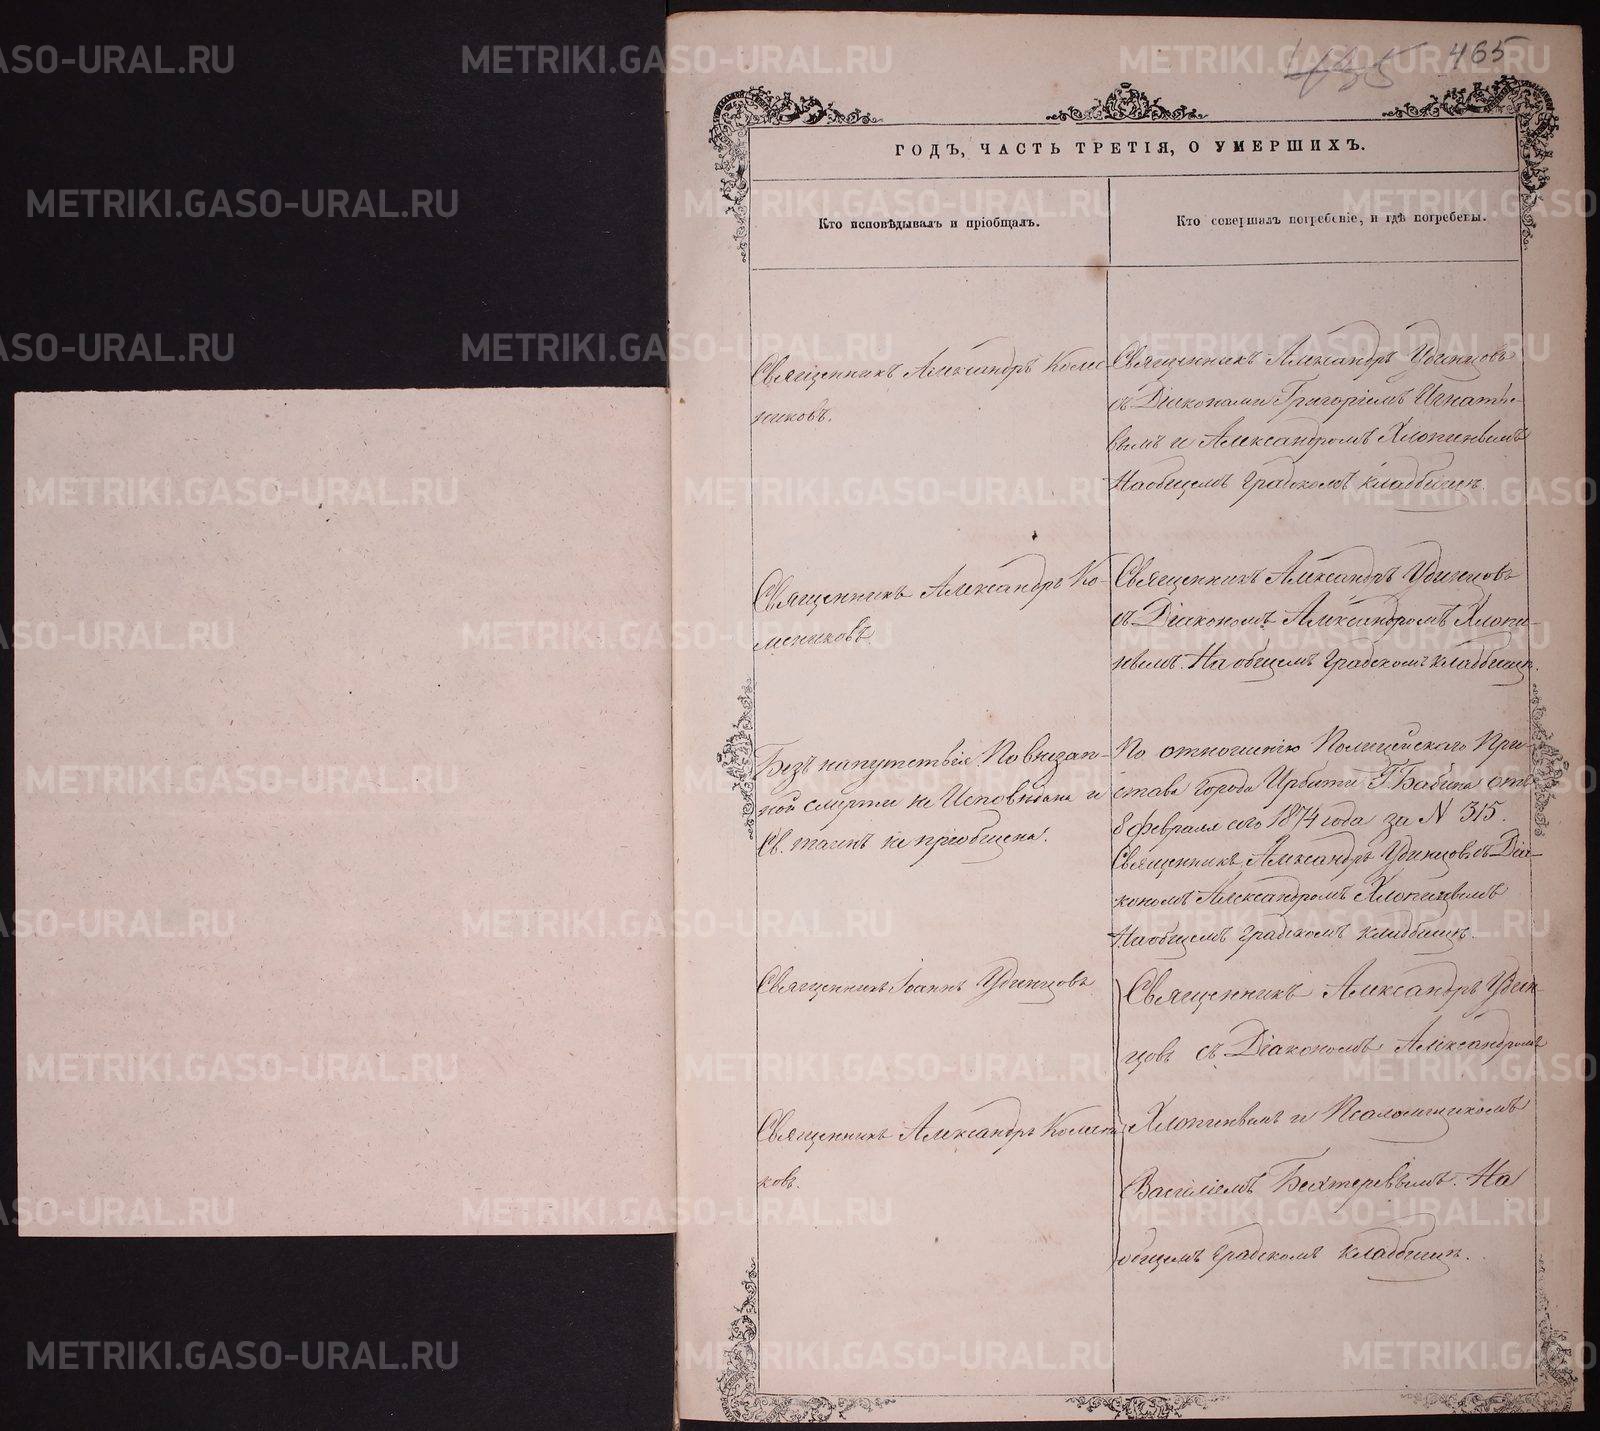 465
ГОДЪ, ЧАСТЬ ТРЕТІЯ, О УМЕРШИХЪ.
Кто исповѣдывалъ и пріобщалъ.
Кто совершалъ погребеніе, и гдѣ погребены.
Священникъ Александръ Коме-
никовъ.
Священникъ Александръ Удинцовъ
съ Діаконами Григоріемъ Игнатье-
вымъ и Александромъ Хлопинымъ
На общемъ градскомъ кладбищѣ.
Священникъ Александръ Ко-
мениковъ
Священникъ Александръ Удинцовъ
съ Діакономъ Александромъ Хлопи-
нымъ. На общемъ градскомъ кладбищѣ.
Безъ напутствія По внезап-
ной смерти не Исповѣдана и
Св. таинъ не пріобщена.
По отношенію Полицейскаго При-
става города Ирбити Г. Бабина отъ
8 февраля сего 1874 года за N 315.
Священникъ Александръ Удинцовъ съ Діа-
кономъ Александромъ Хлопинымъ
На общемъ градскомъ кладбищѣ.
Священникъ Іоаннъ Удинцовъ
Священникъ Александръ Комени
ковъ.
Священникъ Александръ Удин-
цовъ съ Діакономъ Александромъ
Хлопинымъ и Псаломщикомъ
Василіемъ Бехтеревымъ. На
общемъ градскомъ кладбищѣ.
METRIKI.GASO-URAL.RU